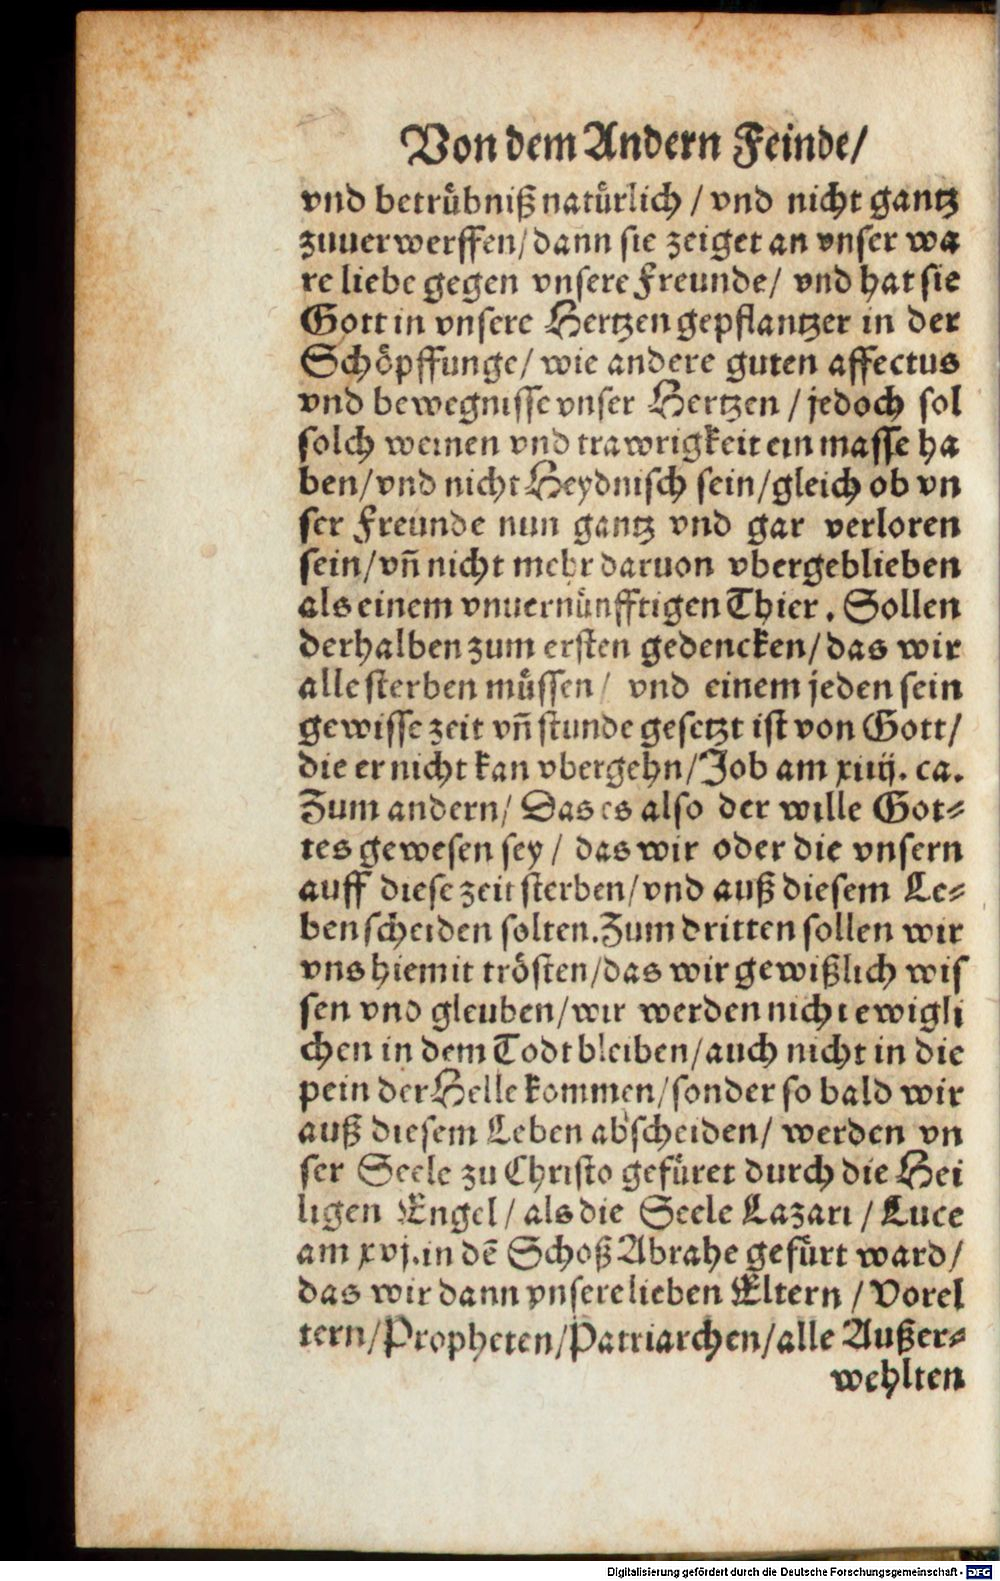 Von dem Andern Feinde/
vnd betrübniß natürlich / vnd nicht gantz
zuuerwerffen/ dann sie zeiget an vnser wa
re liebe gegen vnsere Freunde/ vnd hat sie
Gott in vnsere Hertzen gepflantzer in der
Schöpffunge/ wie andere guten affectus
vnd bewegnisse vnser Hertzen / jedoch sol
solch weinen vnd trawrigkeit ein masse ha
ben/ vnd nicht Heydnisch sein/ gleich ob vn
ser Freunde nun gantz vnd gar verloren
sein/ vñ nicht mehr daruon vbergeblieben
als einem vnuernünfftigen Thier. Sollen
derhalben zum ersten gedencken/ das wir
alle sterben müssen/ vnd einem jeden sein
gewisse zeit vñ stunde gesetzt ist von Gott/
die er nicht kan vbergehn/ Job am xiiij. ca.
Zum andern/ Das es also der wille Got-
tes gewesen sey/ das wir oder die vnsern
auff diese zeit sterben/ vnd auß diesem Le-
ben scheiden solten. Zum dritten sollen wir
vns hiemit trösten/ das wir gewißlich wis
sen vnd gleuben/ wir werden nicht ewigli
chen in dem Todt bleiben/ auch nicht in die
pein der Helle kommen/ sonder so bald wir
auß diesem Leben abscheiden/ werden vn
ser Seele zu Christo gefüret durch die Hei
ligen Engel/ als die Seele Lazari / Luce
am xvj. in dē Schoß Abrahe gefürt ward/
das wir dann vnsere lieben Eltern / Vorel
tern/ Propheten/ Patriarchen/ alle Außer-
wehlten
Digitalisierung gefördert durch die Deutsche Forschungsgemeinschaft - DFG